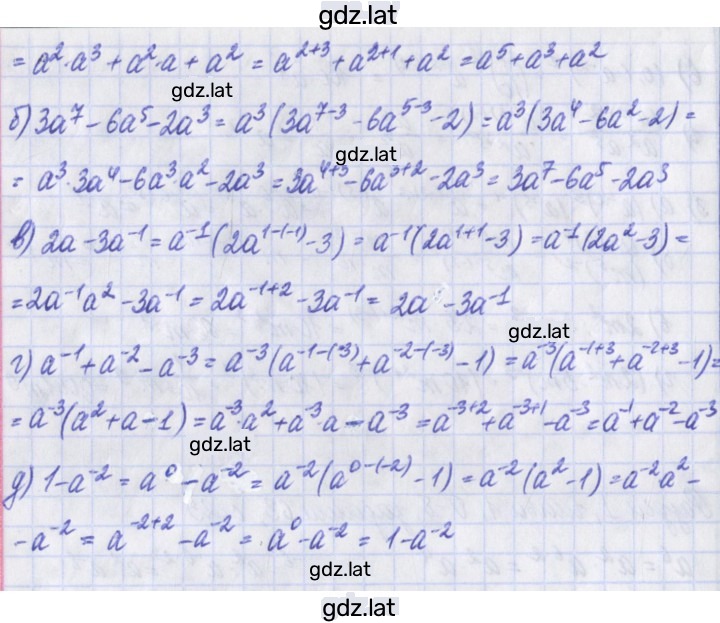 gdz.lat
= a²·a³ + a²·a + a² = a²⁺³ + a²⁺¹ + a² = a⁵ + a³ + a²
gdz.lat
б) 3a⁷ - 6a⁵ - 2a³ = a³(3a⁷⁻³ - 6a⁵⁻³ - 2) = a³(3a⁴ - 6a² - 2) =
gdz.lat
= a³·3a⁴ - 6a³·a² - 2a³ = 3a⁴⁺³ - 6a³⁺² - 2a³ = 3a⁷ - 6a⁵ - 2a³
в) 2a - 3a⁻¹ = a⁻¹(2a¹⁻⁽⁻¹⁾ - 3) = a⁻¹(2a¹⁺¹ - 3) = a⁻¹(2a² - 3) =
= 2a⁻¹a² - 3a⁻¹ = 2a⁻¹⁺² - 3a⁻¹ = 2a - 3a⁻¹
gdz.lat
г) a⁻¹ + a⁻² - a⁻³ = a⁻³(a⁻¹⁻⁽⁻³⁾ + a⁻²⁻⁽⁻³⁾ - 1) = a⁻³(a⁻¹⁺³ + a⁻²⁺³ - 1) =
= a⁻³(a² + a - 1) = a⁻³·a² + a⁻³·a - a⁻³ = a⁻³⁺² + a⁻³⁺¹ - a⁻³ = a⁻¹ + a⁻² - a⁻³
gdz.lat
д) 1 - a⁻² = a⁰ - a⁻² = a⁻²(a⁰⁻⁽⁻²⁾ - 1) = a⁻²(a² - 1) = a⁻²a² -
- a⁻² = a⁻²⁺² - a⁻² = a⁰ - a⁻² = 1 - a⁻²
gdz.lat
gdz.lat